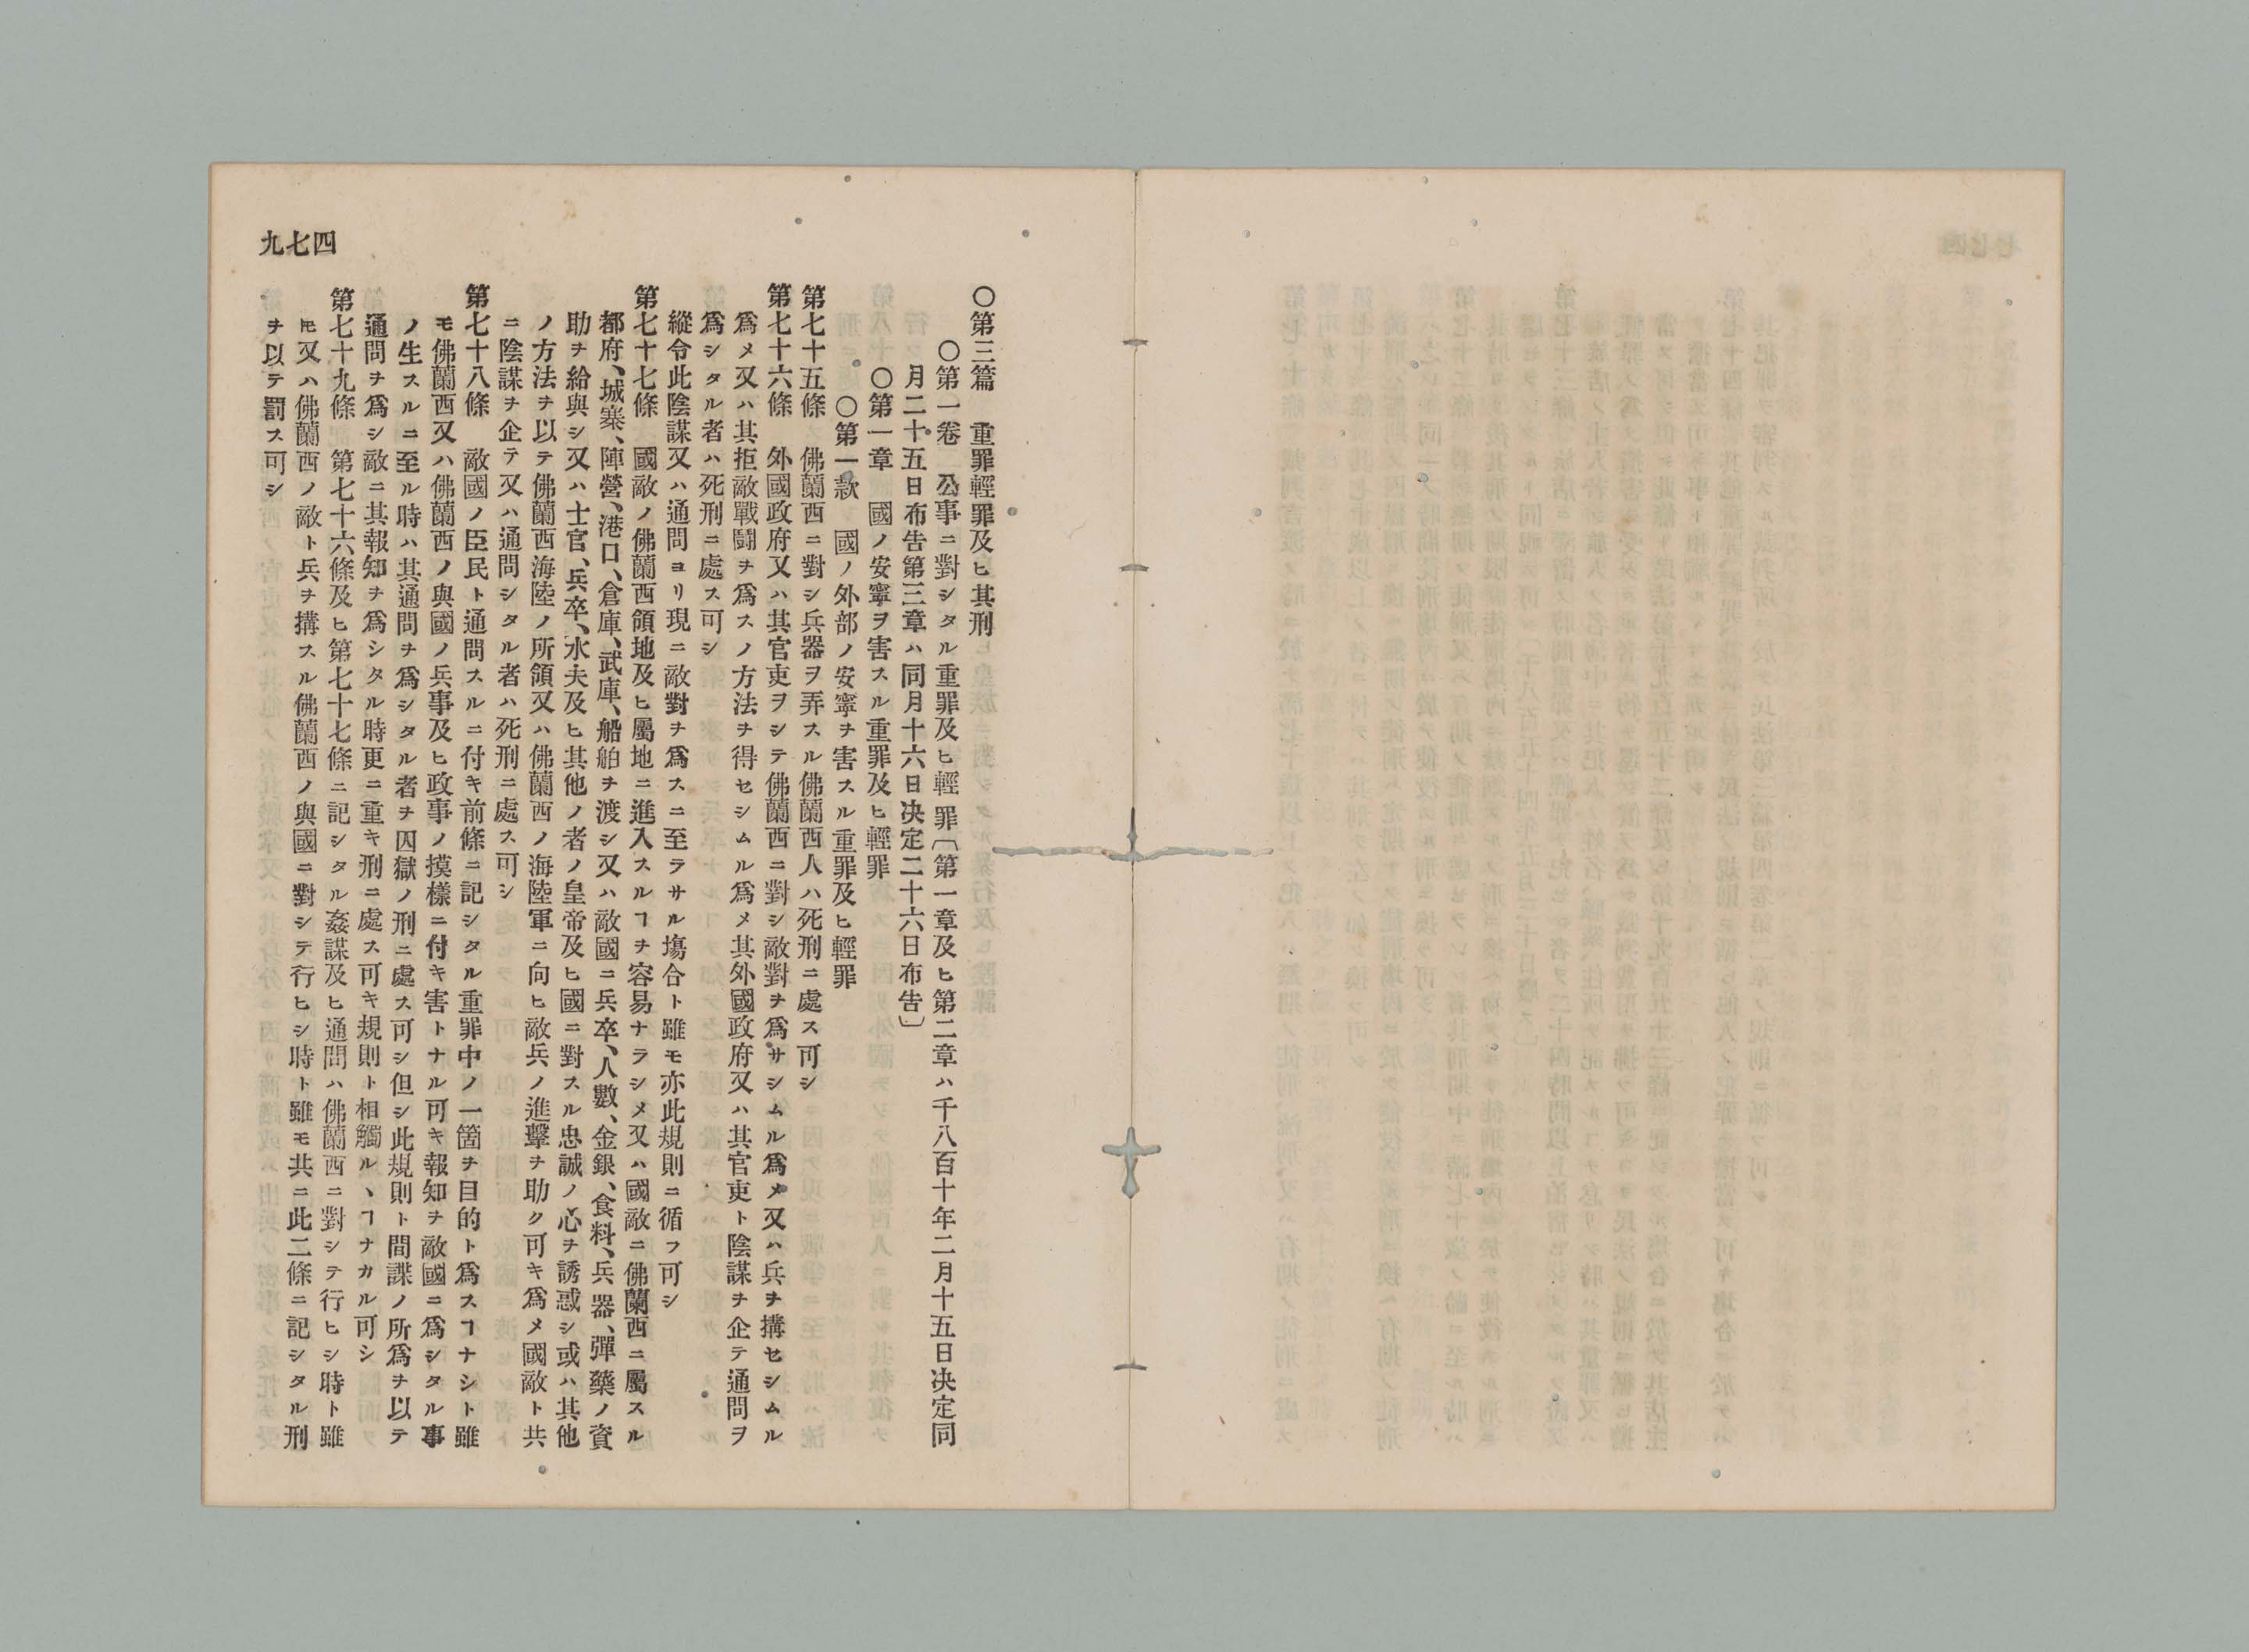 九七四
〇第三篇　重罪輕罪及ヒ其刑
〇第一卷　公事ニ對シタル重罪及ヒ輕罪〔第一章及ヒ第二章ハ千八百十年二月十五日决定同
月二十五日布告第三章ハ同月十六日决定二十六日布告〕
〇第一章　國ノ安寧ヲ害スル重罪及ヒ輕罪
〇第一款　國ノ外部ノ安寧ヲ害スル重罪及ヒ輕罪
第七十五條　佛蘭西ニ對シ兵器ヲ弄スル佛蘭西人ハ死刑ニ處ス可シ
第七十六條　外國政府又ハ其官吏ヲシテ佛蘭西ニ對シ敵對ヲ爲サシムル爲メ又ハ兵ヲ搆セシムル
爲メ又ハ其拒敵戰鬪ヲ爲スノ方法ヲ得セシムル爲メ其外國政府又ハ其官吏ト陰謀ヲ企テ通問ヲ
爲シタル者ハ死刑ニ處ス可シ
縱令此陰謀又ハ通問ヨリ現ニ敵對ヲ爲スニ至ラサル塲合ト雖モ亦此規則ニ循フ可シ
第七十七條　國敵ノ佛蘭西領地及ヒ屬地ニ進入スルヿヲ容易ナラシメ又ハ國敵ニ佛蘭西ニ屬スル
都府、城寨、陣營、港口、倉庫、武庫、船舶ヲ渡シ又ハ敵國ニ兵卒、人數、金銀、食料、兵器、彈藥ノ資
助ヲ給與シ又ハ士官、兵卒、水夫及ヒ其他ノ者ノ皇帝及ヒ國ニ對スル忠誠ノ心ヲ誘惑シ或ハ其他
ノ方法ヲ以テ佛蘭西海陸ノ所領又ハ佛蘭西ノ海陸軍ニ向ヒ敵兵ノ進擊ヲ助ク可キ爲メ國敵ト共
ニ陰謀ヲ企テ又ハ通問シタル者ハ死刑ニ處ス可シ
第七十八條　敵國ノ臣民ト通問スルニ付キ前條ニ記シタル重罪中ノ一箇ヲ目的ト爲スヿナシト雖
モ佛蘭西又ハ佛蘭西ノ與國ノ兵事及ヒ政事ノ摸樣ニ付キ害トナル可キ報知ヲ敵國ニ爲シタル事
ノ生スルニ至ル時ハ其通問ヲ爲シタル者ヲ囚獄ノ刑ニ處ス可シ但シ此規則ト間諜ノ所爲ヲ以テ
通問ヲ爲シ敵ニ其報知ヲ爲シタル時更ニ重キ刑ニ處ス可キ規則ト相觸ルヽヿナカル可シ
第七十九條　第七十六條及ヒ第七十七條ニ記シタル姦謀及ヒ通問ハ佛蘭西ニ對シテ行ヒシ時ト雖
𪜈又ハ佛蘭西ノ敵ト兵ヲ搆スル佛蘭西ノ與國ニ對シテ行ヒシ時ト雖モ共ニ此二條ニ記シタル刑
ヲ以テ罰ス可シ